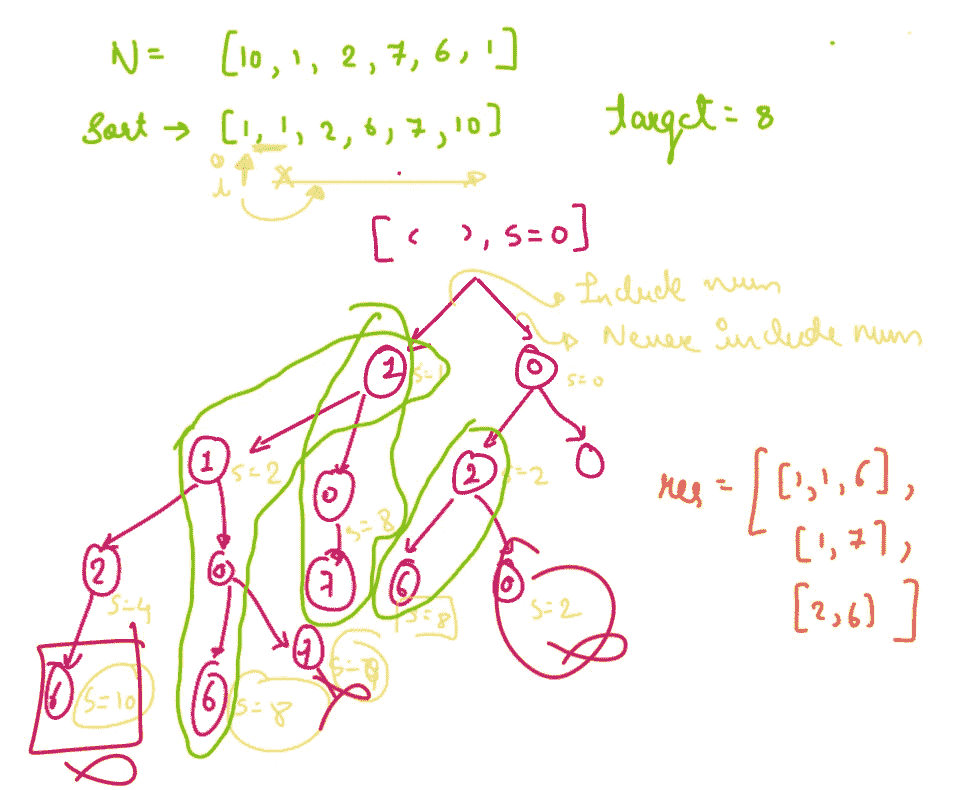 N = [10, 1, 2, 7, 6, 1]
Sort → [1, 1, 2, 6, 7, 10]
target = 8
0
i
X
[ ( ), S=0]
Include num
Never include num
1
S=1
0
S=0
1
S=2
0
S=8
2
S=2
0
2
S=4
0
7
6
S=8
0
S=2
6
S=10
6
S=8
7
S=9
res = [[1,1,6],
[1,7],
[2,6)]